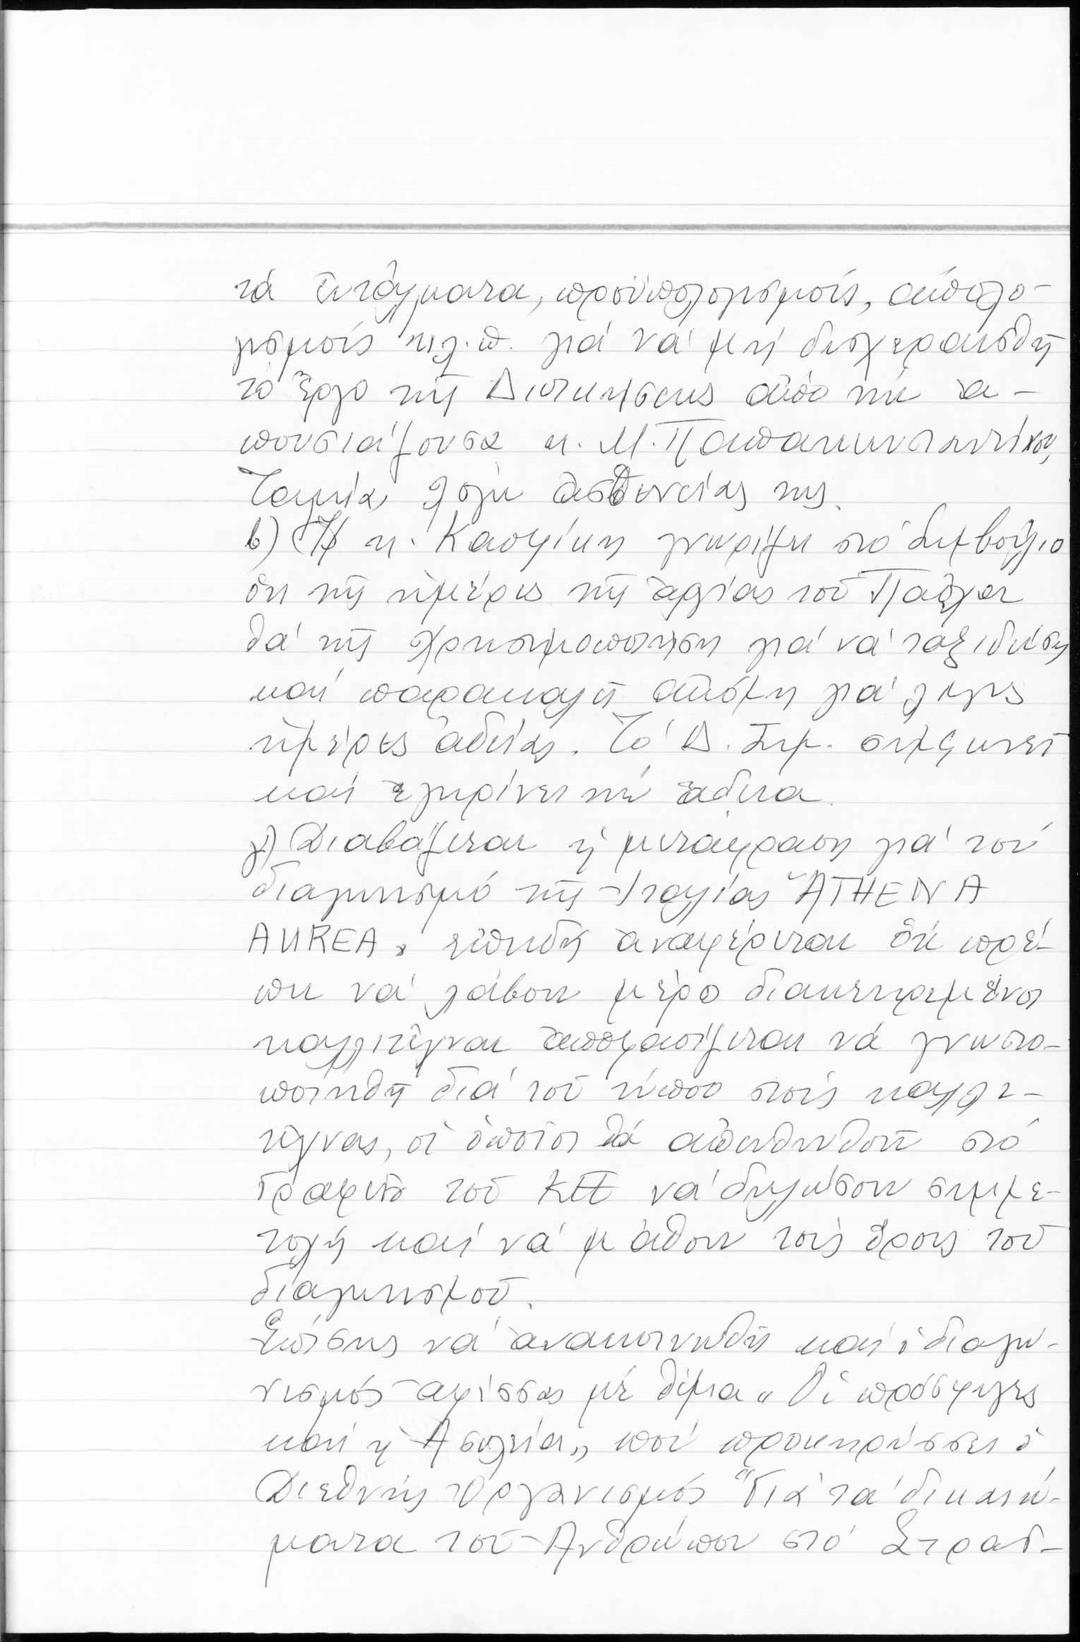 τά ἐντάλματα, προϋπολογισμούς, ἀπολο-
γισμούς κ.λ.π. γιά νά μή δυσχερανσθῆ
τό ἔργο τῆς Διοικήσεως ἀπό τήν ἀ-
πουσιάζουσα κ. Μ. Παπακωνσταντίνου,
Ταμία λόγω ἀσθενείας της.
β) Ἡ κ. γνωρίζει στό Συμβούλιο
ὅτι τῆς ἡμέρες τῆς ἀργίας τοῦ Πάσχα
θά τῆς χρησιμοποιήση γιά νά ταξιδεύση
καί παρακαλῆ ἀκόμη γιά λίγες
ἡμέρες ἀδείας. Τό Δ. Συμ. συμφωνεῖ
καί ἐγκρίνει τήν ἄδεια.
γ) Διαβάζεται ἡ μετάφραση γιά τόν
διαγωνισμό τῆς Ἰταλίας "ATHENA
AUREA„ ἐπειδή ἀναφέρεται ὅτι πρέ-
πει νά λάβουν μέρος διακεκριμένοι
καλλιτέχναι ἀποφασίζεται νά γνωστο-
ποιηθῆ διά τοῦ τύπου στούς καλλι-
τέχνας, οἱ ὁποῖοι θά ἀπευθυνθοῦν στό
Γραφεῖο τοῦ ΚΕΕ νά δηλώσουν συμμε-
τοχή καί νά μάθουν τούς ὅρους τοῦ
διαγωνισμοῦ.
Ἐπίσης νά ἀνακοινωθῆ καί ὁ διαγω-
νισμός ἀφίσσας μέ θέμα „Οἱ πρόσφυγες
καί ἡ Ἀσυλία„ πού προκηρύσσει ὁ
Διεθνής Ὀργανισμός "Γιά τά δικαιώ-
ματα τοῦ Ἀνθρώπου στό Στρασ-